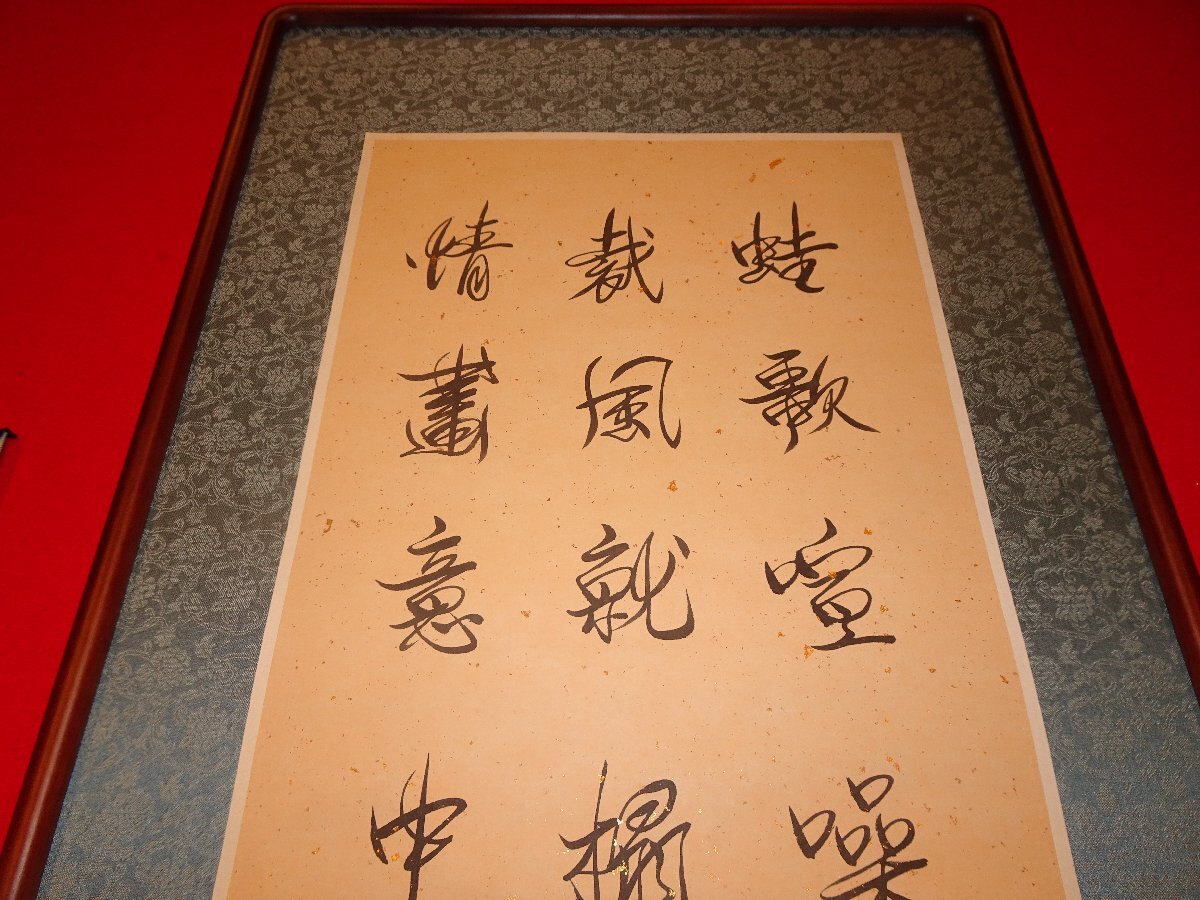 蛙歌喧噪
裁風就榻
情畫意中